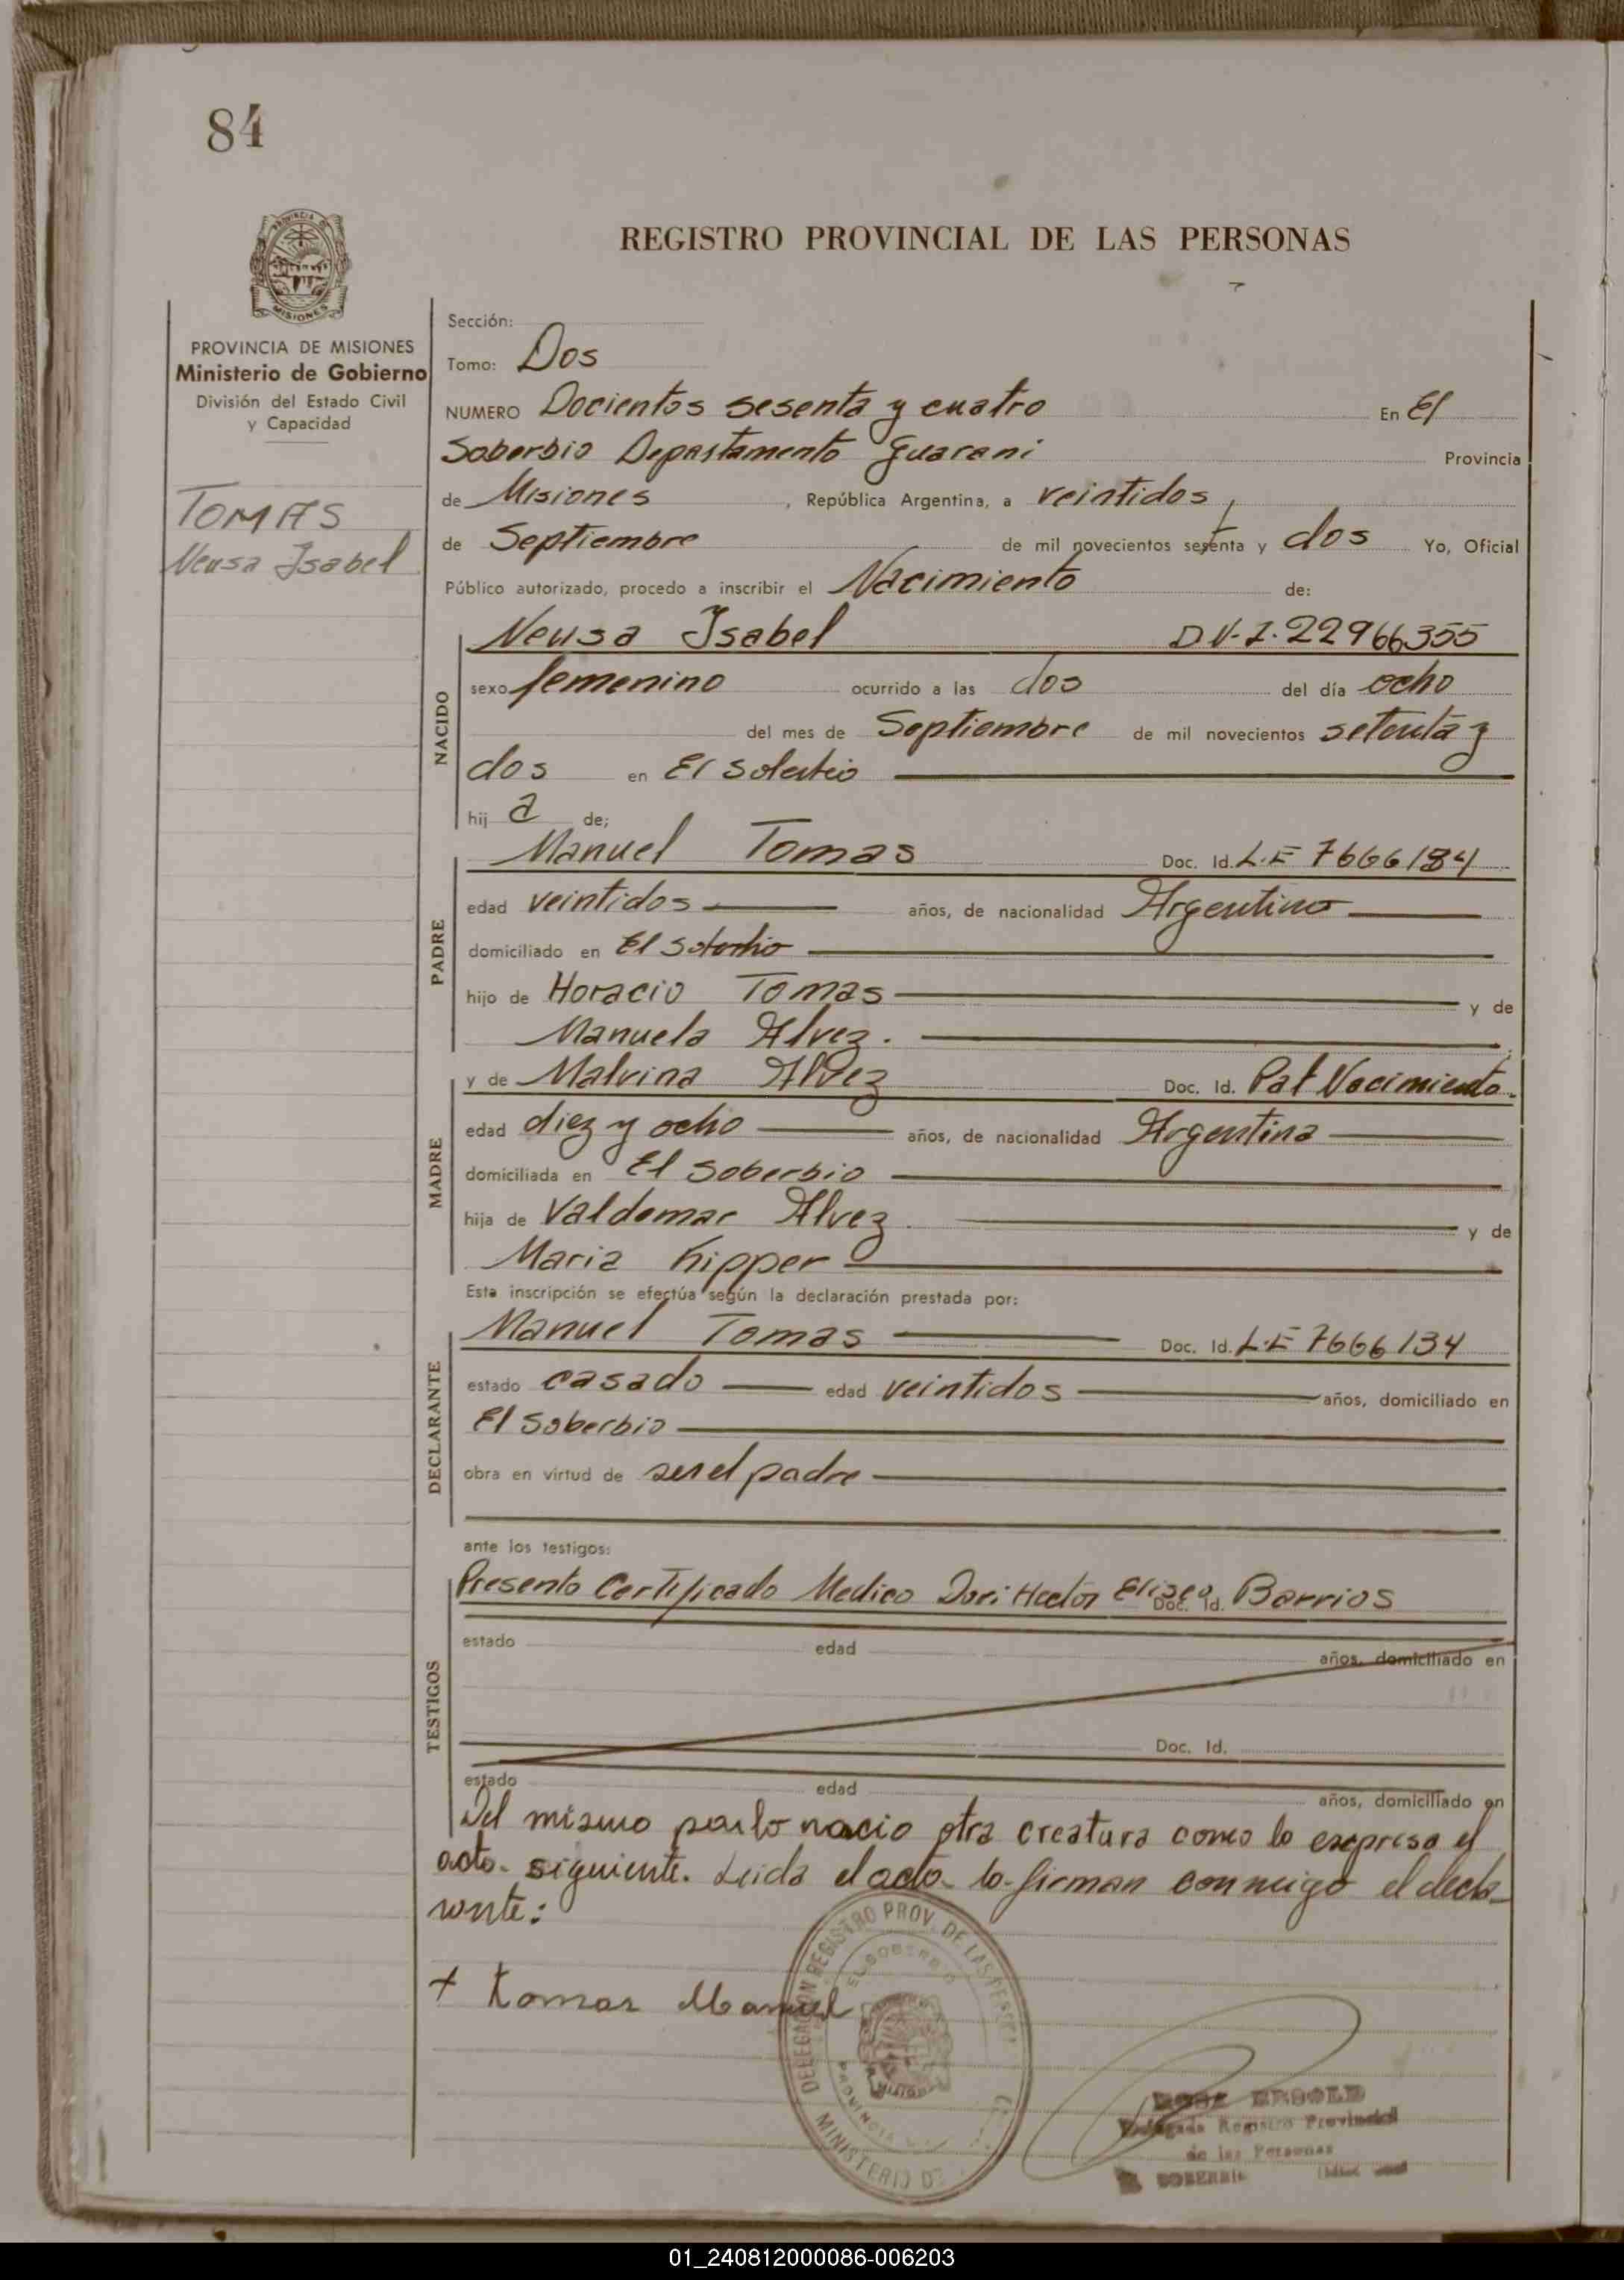 84
PROVINCIA DE MISIONES
REGISTRO PROVINCIAL DE LAS PERSONAS
PROVINCIA DE MISIONES
Ministerio de Gobierno
División del Estado Civil
y Capacidad
TOMAS
Neusa Isabel
Sección:
Tomo: Dos
NUMERO Docientos sesenta y cuatro En El
Soberbio Departamento Guarani Provincia
de Misiones, República Argentina, a veintidos
de Septiembre de mil novecientos setenta y dos Yo, Oficial
Público autorizado, procedo a inscribir el Nacimiento de:
NACIDO
Neusa Isabel D.N.I. 22966355
sexo femenino ocurrido a las dos del día ocho
del mes de Septiembre de mil novecientos setenta y
dos en El Soberbio
hij a de;
PADRE
Manuel Tomas Doc. Id. L.E 7666184
edad veintidos años, de nacionalidad Argentino
domiciliado en El Soberbio
hijo de Horacio Tomas y de
Manuela Alvez.
MADRE
y de Malvina Alvez Doc. Id. Pat Nacimiento
edad diez y ocho años, de nacionalidad Argentina
domiciliada en El Soberbio
hija de Valdemar Alvez y de
Maria Kipper
Esta inscripción se efectúa según la declaración prestada por:
DECLARANTE
Manuel Tomas Doc. Id. L.E 7666134
estado casado edad veintidos años, domiciliado en
El Soberbio
obra en virtud de ser el padre
ante los testigos:
TESTIGOS
Presento Certificado Medico Hector Eliseo Doc. Id. Barrios
estado edad años, domiciliado en
Doc. Id.
estado edad años, domiciliado en
Del mismo parto nacio otra creatura como lo expresa el
acto. siguiente. Leida el acto lo firman conmigo el decla-
rante:
+ Tomas Manuel
DELEGACION REGISTRO PROV. DE LAS PERSONAS
EL SOBERBIO
PROVINCIA
MISIONES
MINISTERIO DE
Delegada Registro Provincial
de las Personas
SOBERBIO
01_240812000086-006203